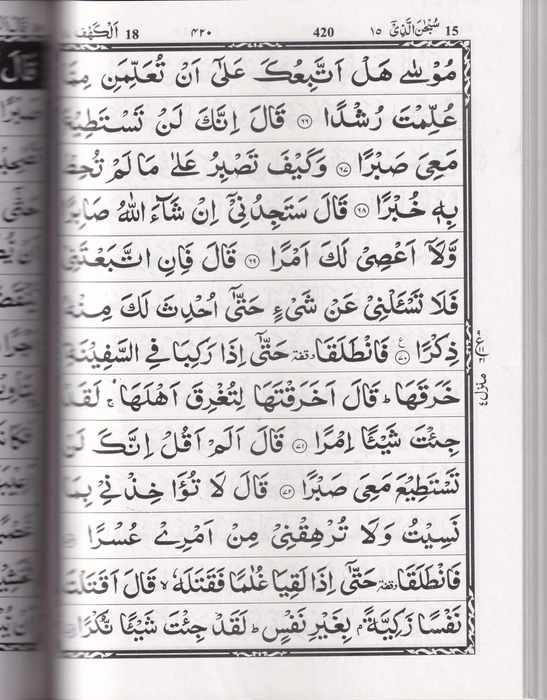 15 سُبْحٰنَ الَّذِیْۤ ١٥ 420 ٤٢٠ اَلْكَهْف 18
مُوْسٰى هَلْ اَتَّبِعُكَ عَلٰۤى اَنْ تُعَلِّمَنِ مِمَّا
عُلِّمْتَ رُشْدًا ٦٦ قَالَ اِنَّكَ لَنْ تَسْتَطِيْعَ
مَعِیَ صَبْرًا ٦٧ وَكَيْفَ تَصْبِرُ عَلٰى مَا لَمْ تُحِطْ
بِهٖ خُبْرًا ٦٨ قَالَ سَتَجِدُنِیْۤ اِنْ شَآءَ اللّٰهُ صَابِرًا
وَّلَاۤ اَعْصِیْ لَكَ اَمْرًا ٦٩ قَالَ فَاِنِ اتَّبَعْتَنِیْ
فَلَا تَسْـَٔلْنِیْ عَنْ شَیْءٍ حَتّٰۤى اُحْدِثَ لَكَ مِنْهُ
ذِكْرًا ٧٠ ع فَانْطَلَقَا وقفة حَتّٰۤى اِذَا رَكِبَا فِی السَّفِيْنَةِ
خَرَقَهَا ؕ قَالَ اَخَرَقْتَهَا لِتُغْرِقَ اَهْلَهَا ۚ لَقَدْ
جِئْتَ شَيْـًٔا اِمْرًا ٧١ قَالَ اَلَمْ اَقُلْ اِنَّكَ لَنْ
تَسْتَطِيْعَ مَعِیَ صَبْرًا ٧٢ قَالَ لَا تُؤَاخِذْنِیْ بِمَا
نَسِيْتُ وَلَا تُرْهِقْنِیْ مِنْ اَمْرِیْ عُسْرًا
فَانْطَلَقَا وقفة حَتّٰۤى اِذَا لَقِيَا غُلٰمًا فَقَتَلَهٗ ۙ قَالَ اَقَتَلْتَ
نَفْسًا زَكِيَّةًۢ بِغَيْرِ نَفْسٍ ؕ لَقَدْ جِئْتَ شَيْـًٔا نُّكْرًا
منزل ٤